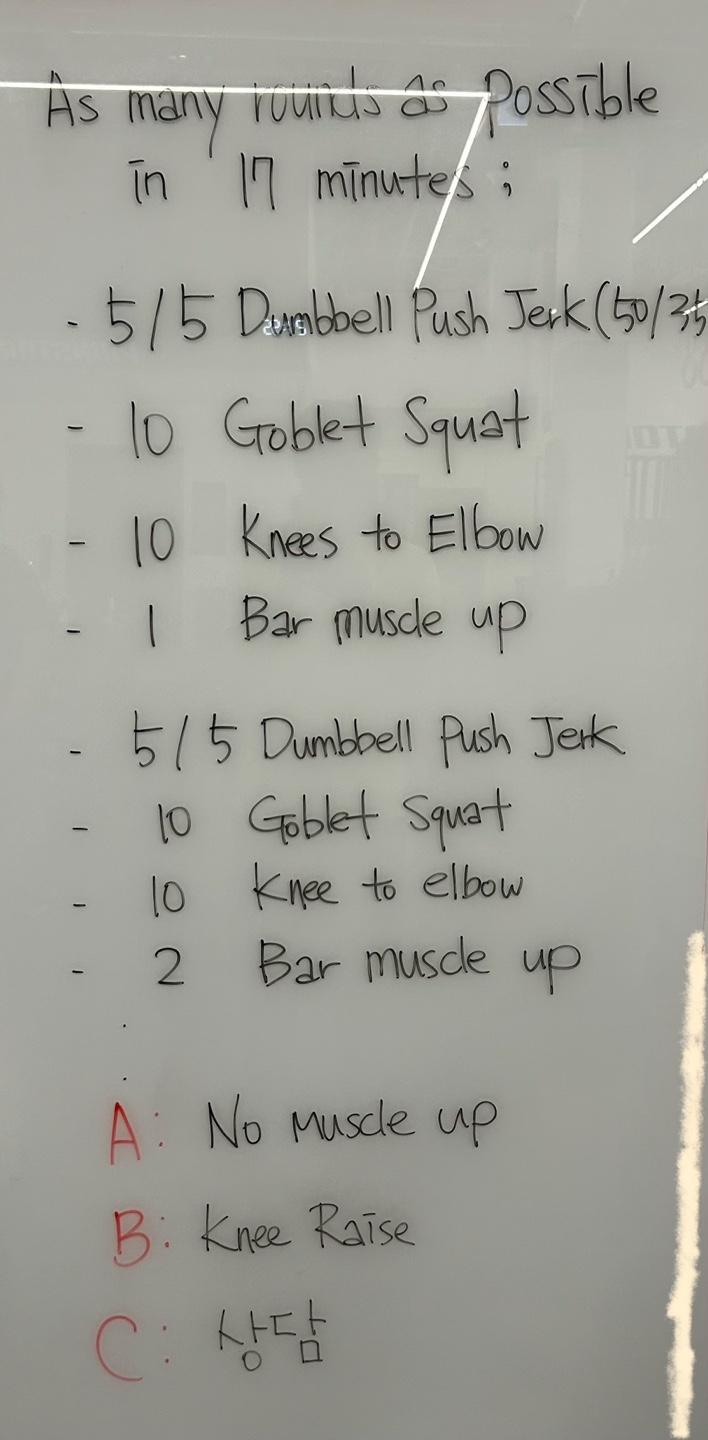 As many rounds as Possible
in 17 minutes ;
- 5/5 Dumbbell Push Jerk (50/35
- 10 Goblet Squat
- 10 Knees to Elbow
- 1 Bar muscle up
- 5/5 Dumbbell Push Jerk
- 10 Goblet Squat
- 10 Knee to elbow
- 2 Bar muscle up
.
.
A: No Muscle up
B: Knee Raise
C: 상담